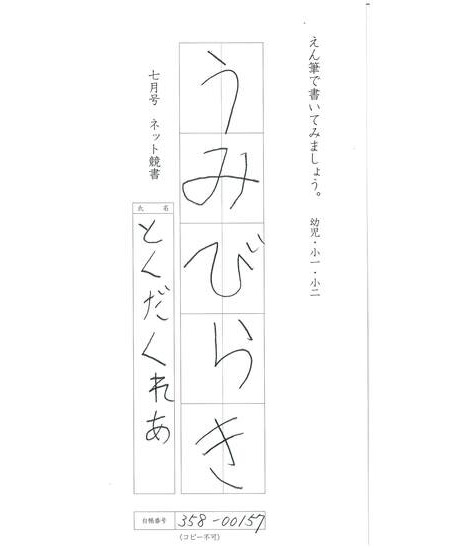 えん筆で書いてみましょう。 幼児・小一・小二
うみびらき
七月号 ネット競書
氏名
とくだくれあ
台帳番号 358-00157
(コピー不可)